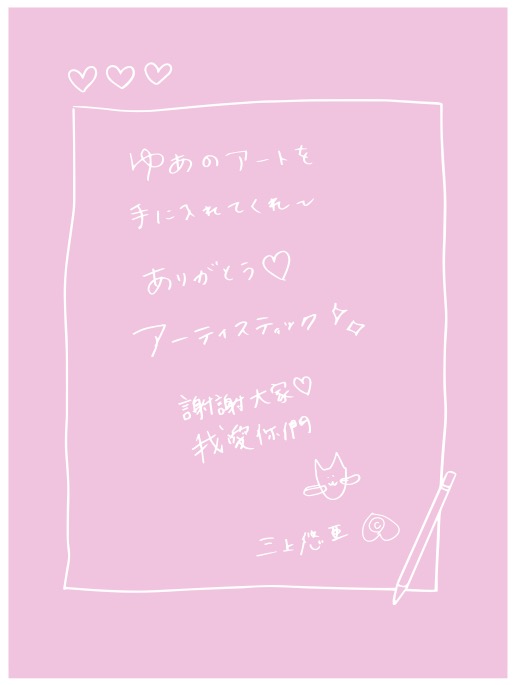 ゆあのアートを
手に入れてくれ〜
ありがとう♡
アーティスティック
謝謝大家♡
我愛你們
三上悠亜 ©